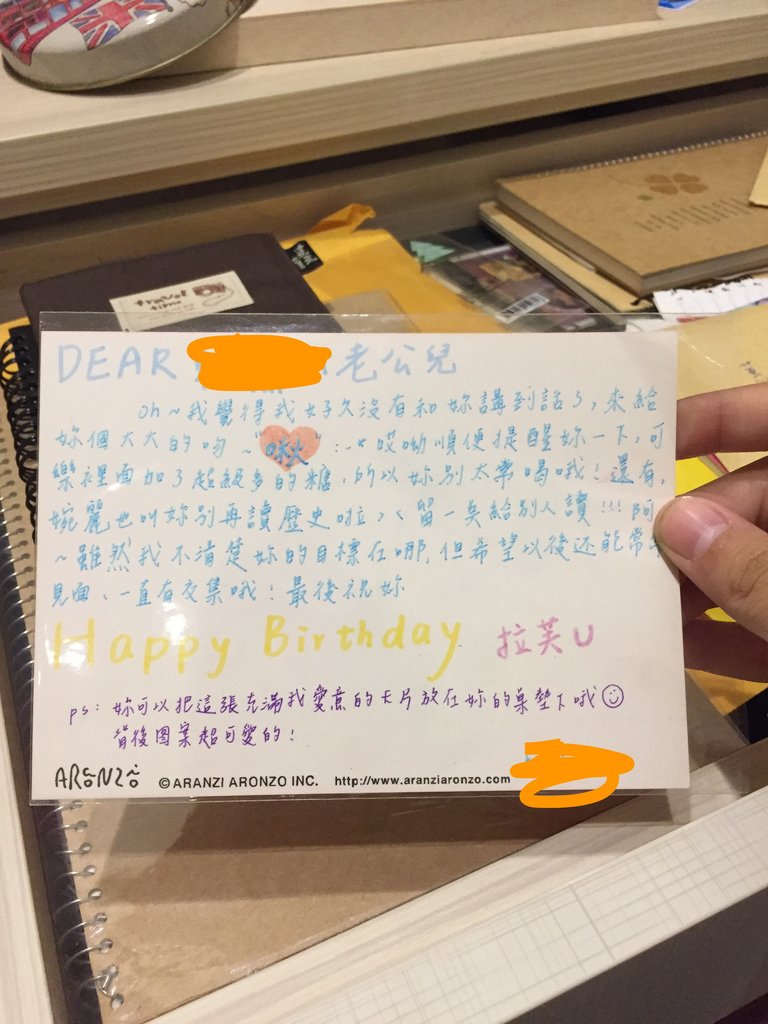 travel
time
DEAR 老公兒
Oh~我覺得我好久沒有和妳講到話了,來給
妳個大大的吻~"啾" :-* 哎呦順便提醒妳一下,可
樂裡面加了超級多的糖,所以妳別太常喝哦!還有,
婉麗也叫妳別再讀歷史啦><留一點給別人讀!!!阿
~雖然我不清楚妳的目標在哪,但希望以後還能常常
見面、一直有交集哦!最後祝妳
Happy Birthday 拉芙U
ps: 妳可以把這張充滿我愛意的卡片放在妳的桌墊下哦
背後圖案超可愛的!
ARONZO ©ARANZI ARONZO INC. http://www.aranziaronzo.com